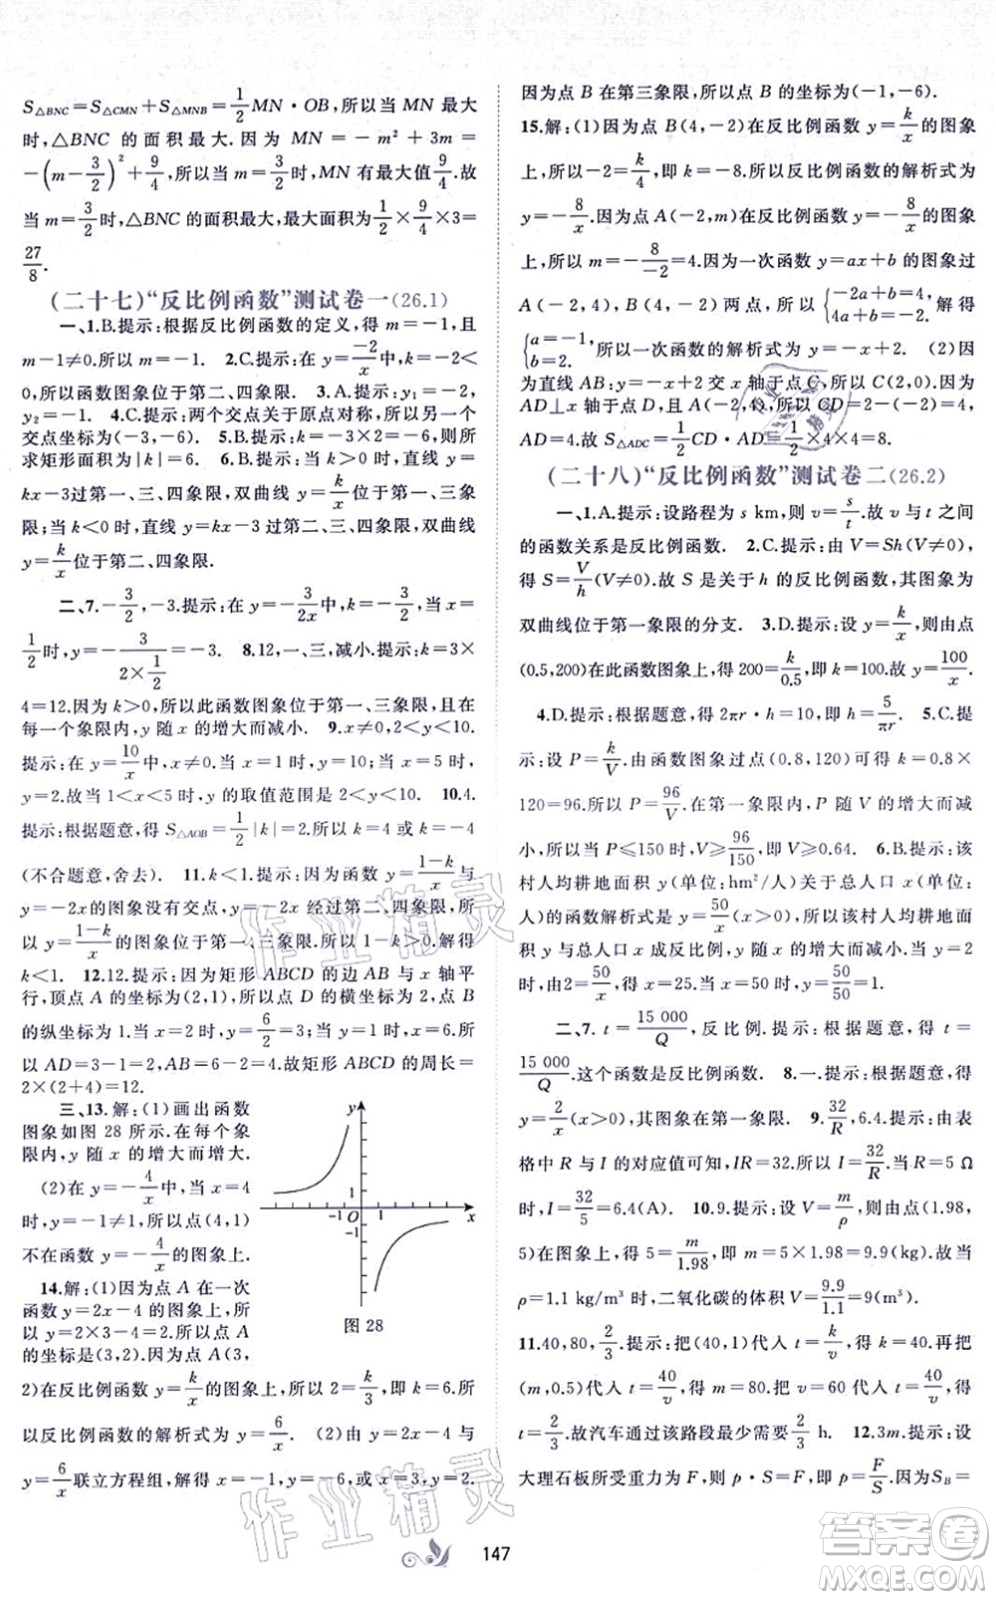 S△BNC=S△CMN+S△MNB=1/2 MN·OB,所以当 MN 最大
时,△BNC 的面积最大.因为 MN=-m²+3m=
-(m-3/2)²+9/4,所以当 m=3/2时,MN 最大值是9/4.故
当 m=3/2时,△BNC 的面积最大,最大面积为1/2×9/4×3=
27/8.
(二十七)“反比例函数”测试卷一(26.1)
一、1.B.提示:根据反比例函数的定义,得 m=-1,且
m-1≠0.所以 m=-1. 2.C.提示:在 y=-2/x中,k=-2<
0,所以函数图象位于第二、四象限. 3.A.提示:y₁=-2,
y₂=-1. 4.C.提示:两个交点关于原点对称,所以另一个
交点坐标为(-2,-4). 5.B.提示:根据反比例函数性质,所
求矩形面积为|k|=6. 6.B.提示:当 k>0 时,直线 y=
kx-3过第一、三、四象限,双曲线 y=k/x位于第一、三象
限;当 k<0 时,直线 y=kx-3过第二、三、四象限,双曲线
y=k/x位于第二、四象限.
二、7.-3/2,-3.提示:在 y=-3/2x中,当 x=1,y=-3/2,当 x=
1/2时,y=-3/(2×1/2)=-3. 8.12,一、三,减小.提示:k=3×
4=12.因为 k>0,所以此函数图象位于第一、三象限,且在
每一个象限内,y 随 x 的增大而减小. 9.x≠0,2<y<10.
提示:在 y=10/x中,x≠0.当 x=1 时,y=10;当 x=5 时,y=
2.故当 1<x<5 时,y 的取值范围是 2<y<10. 10.4.
提示:根据题意,得 S△AOB=1/2|k|=2.所以 k=4 或 k=-4
(不合题意,舍去). 11.k<1.提示:因为函数 y=1-k/x与
y=-2x的图象没有交点,y=-2x 经过第二、四象限,所
以 y=1-k/x的图象在第一、三象限.所以 1-k>0.解得
k<1. 12.12.提示:因为矩形 ABCD 的边 AB 与 x 轴平
行,顶点 A 的坐标为(2,1),所以点 D 的横坐标为 2,点 B
的纵坐标为 1.当 x=2 时,y=6/2=3;当 y=1 时,x=6.所
以 AD=3-1=2,AB=6-2=4.故矩形 ABCD 的周长=
2×(2+4)=12.
三、13.解:(1)画出函数
图象如图 28 所示.在每个象
限内,y 随 x 的增大而增大.
(2)在 y=-4/x中,当 x=4
时,y=-1≠1,所以点(4,1)
不在函数 y=-4/x的图象上.
14.解:(1)因为点 A 在一次
函数 y=2x-4 的图象上,所
以 y=2×3-4=2.所以点 A
的坐标是(3,2).因为点 A(3,
y
1
-1 O 1 x
-1
图 28
2)在反比例函数 y=k/x的图象上,所以 2=k/3,即 k=6.所
以反比例函数的解析式为 y=6/x. (2)由 y=2x-4 与
y=6/x联立方程组,解得 x=-1,y=-6,或 x=3,y=2.
因为点 B 在第三象限,所以点 B 的坐标为(-1,-6).
15.解:(1)因为点 B(4,-2)在反比例函数 y=k/x的图象
上,所以-2=k/4,即 k=-8.所以反比例函数的解析式为
y=-8/x.因为点 A(-2,m)在反比例函数 y=-8/x的图象
上,所以 m=-8/-2=4.因为一次函数 y=ax+b 的图象过
点 A(-2,4),B(4,-2)两点,所以{-2a+b=4,4a+b=-2.解得
{a=-1,b=2.所以一次函数的解析式为 y=-x+2. (2)因
为直线 AB:y=-x+2 交 x 轴于点 C,所以 C(2,0).因为
AD⊥x 轴于点 D,A(-2,4),所以 CD=2-(-2)=4,
AD=4.故 S△ADC=1/2 CD·AD=1/2×4×4=8.
(二十八)“反比例函数”测试卷二(26.2)
一、1.A.提示:设路程为 s km,则 v=s/t.故 v 与 t 之间
的函数关系是反比例函数. 2.C.提示:由 V=Sh(V≠0),
得 S=V/h(h≠0).故 S 是关于 h 的反比例函数,其图象为
双曲线位于第一象限的分支. 3.D.提示:设 y=k/x,由点
(0.5,200)在此函数图象上,得 200=k/0.5,即 k=100.故 y=100/x.
4.D.提示:根据题意,得 2πr·h=10,即 h=5/πr. 5.C.提
示:设 P=k/V.由函数图象过点(0.8,120)可得 k=0.8×
120=96.所以 P=96/V.在第一象限内,P 随 V 的增大而减
小,所以当 P≤150 时,V≥96/150,即 V≥0.64. 6.B.提示:该
村人均耕地面积 y(单位:hm²/人)关于总人口 x(单位:
人)的函数解析式是 y=50/x(x>0),所以该村人均耕地面
积 y 与总人口 x 成反比例,y 随 x 的增大而减小.当 y=2
时,由2=50/x,得 x=25;当 x=50 时,y=50/50=1.
二、7. t=15 000/Q,反比例.提示:根据题意,得 t=
15 000/Q.这个函数是反比例函数. 8.一.提示:根据题意,得
y=2/x(x>0),其图象在第一象限. 9.32/R,6.4.提示:由表
格中 R 与 I 的对应值可知,IR=32.所以 I=32/R.当 R=5 Ω
时,I=32/5=6.4(A). 10.9.提示:设 V=m/ρ,由点(1.98,
5)在图象上,得 5=m/1.98,即 m=5×1.98=9.9(kg).故当
ρ=1.1 kg/m³时,二氧化碳的体积 V=9.9/1.1=9(m³).
11.40,80,2/3.提示:把(40,1)代入 t=k/v,得 k=40.再把
(m,0.5)代入 t=40/v,得 m=80.把 v=60 代入 t=40/v,得
t=2/3.故汽车通过该路段最少需要2/3 h. 12.3m.提示:设
大理石板所受重力为 F,则 p·S=F,即 p=F/S.因为S_B=
147
作业精灵
作业精灵
答案圈
MXQE.COM